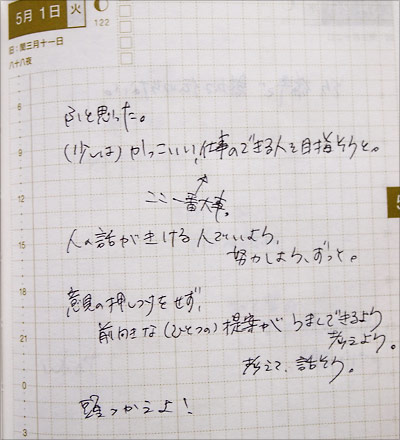 5月 1日 火
122
旧:閏三月十一日
八十八夜
6
ふと思った。
9
(少しは)かっこいい、仕事のできる人を目指そうと。
12
ここ一番大事。
15
人の話がきける人でいよう、
努力しよう、ずっと。
18
意見の押しつけをせず、
前向きな(ひとつの)提案がうまくできるよう
21
考えよう。
0
考えて、話そう。
頭つかえよ!
3
5